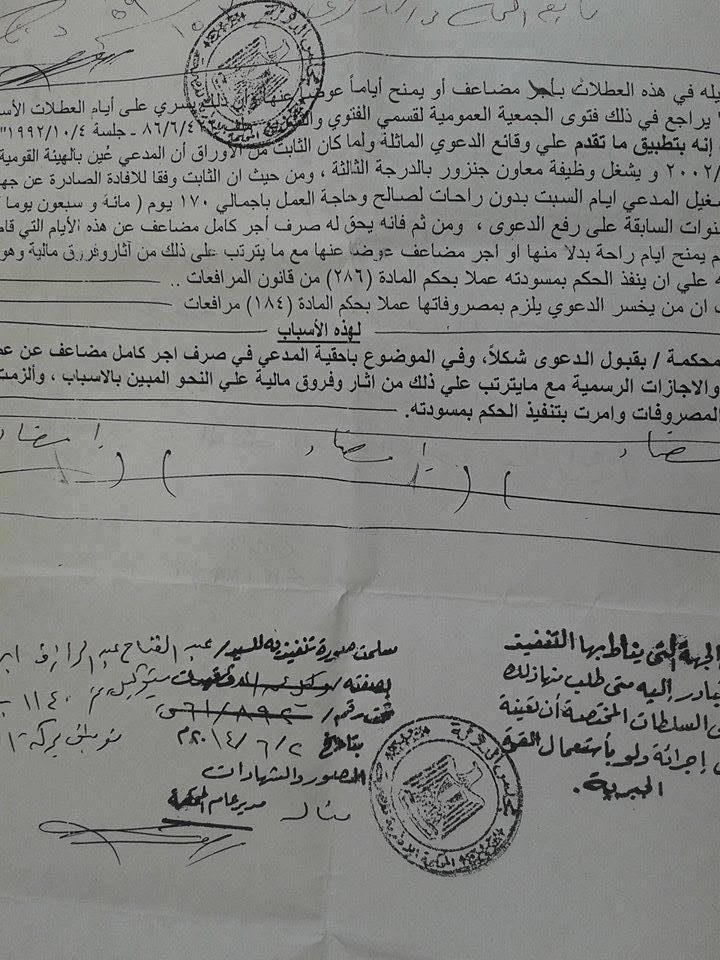 يله في هذه العطلات بأجر مضاعف أو يمنح أياماً عوضا عنها ذلك يسري علي أيام العطلات الأس
يراجع في ذلك فتوى الجمعية العمومية لقسمي الفتوي والتشريع ٨٦/٦/٤ ـ جلسة ١٩٩٢/١٠/٤"
إنه بتطبيق ما تقدم علي وقائع الدعوي الماثلة ولما كان الثابت من الأوراق أن المدعي عُين بالهيئة القومية
٢٠٠٢/ و يشغل وظيفة معاون جنزور بالدرجة الثالثة ، ومن حيث ان الثابت وفقا للافادة الصادرة عن جه
شغيل المدعي ايام السبت بدون راحات لصالح وحاجة العمل باجمالي ١٧٠ يوم ( مائة و سبعون يوما
سنوات السابقة على رفع الدعوى ، ومن ثم فانه يحق له صرف أجر كامل مضاعف عن هذه الأيام التي قام
م يمنح ايام راحة بدلا منها او اجر مضاعف عوضا عنها مع ما يترتب على ذلك من آثاروفرق مالية وهو
ه علي ان ينفذ الحكم بمسودته عملا بحكم المادة (٢٨٦) من قانون المرافعات ..
ث ان من يخسر الدعوي يلزم بمصروفاتها عملا بحكم المادة (١٨٤) مرافعات
لهذه الأسباب
محكمة / بقبول الدعوى شكلاً، وفي الموضوع باحقية المدعي في صرف اجر كامل مضاعف عن عم
والاجازات الرسمية مع مايترتب علي ذلك من اثار وفروق مالية علي النحو المبين بالاسباب ، وألزمت
المصروفات وامرت بتنفيذ الحكم بمسودته.
مضاء ( ) إمضاء ( ) إمضا
الجهة التي يناط بها التنفيذ
تبادر إليه متى طلب منها ذلك
ى السلطات المختصة أن تعينه
ى إجرائه ولو بأستعمال القوة
الجبرية.
سلمت صورة تنفيذية للسيد/ عبد الفتاح عبد الرازق ابر
بصفته / بتوكيل ١١٤٠
تحت رقم / ٦١/٨٩٢ ق توثيق بركة ا
بتاريخ ٢٠١٤/٦/٢م
الصور والشهادات
مدير عام المحكمة
مجلس الدولة
مجلس الدولة